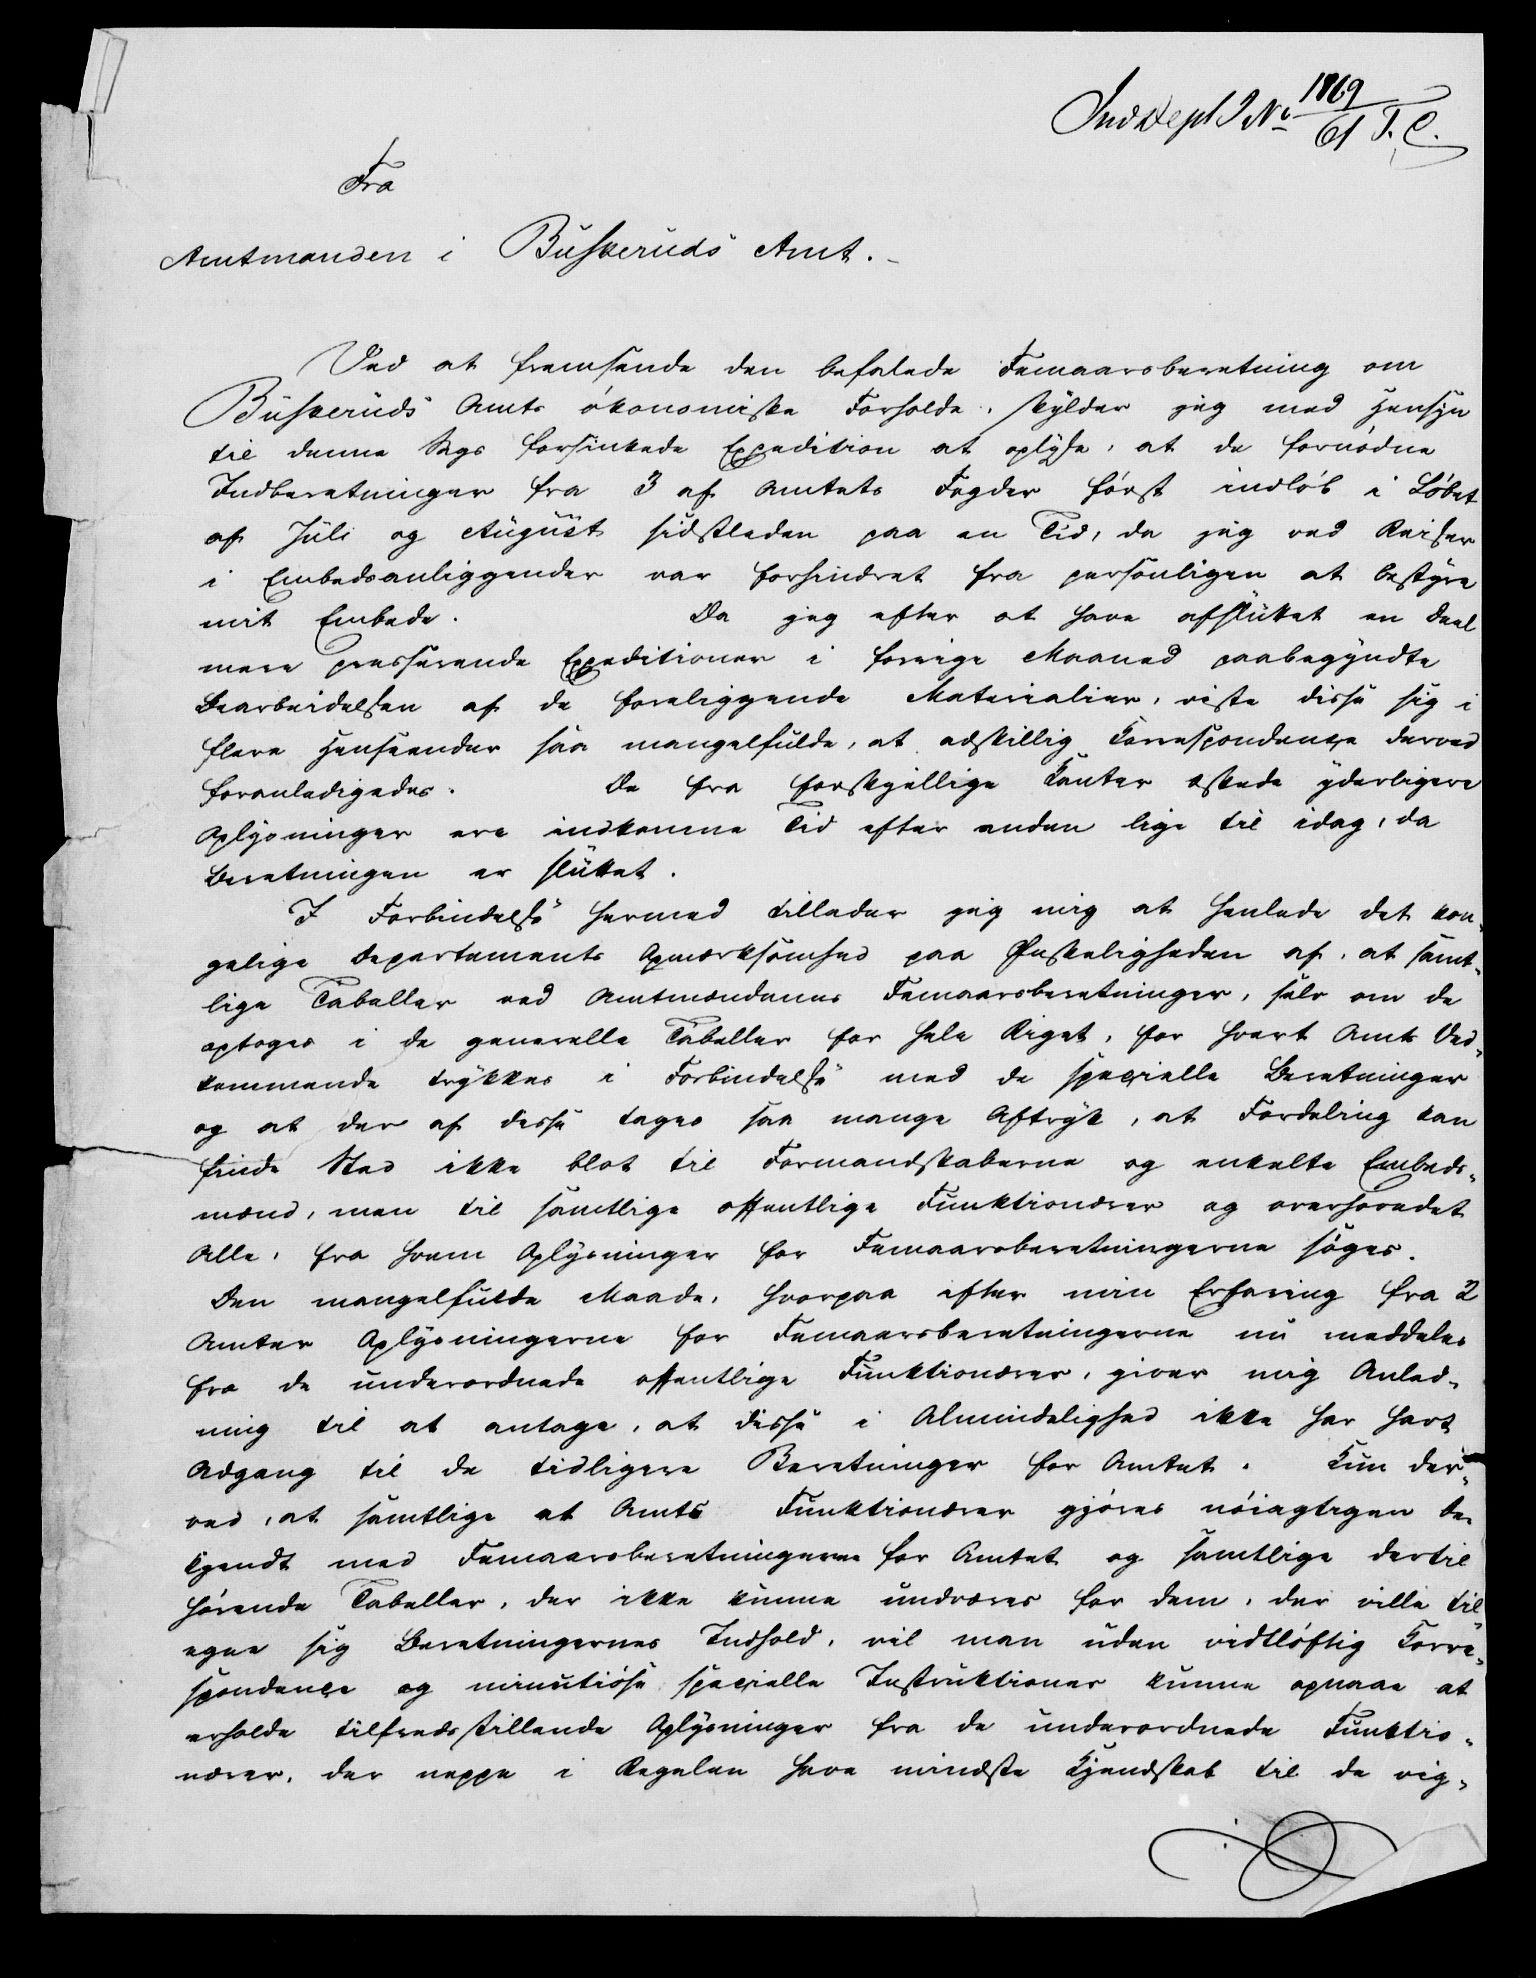 Ind Dept J No 1869/61 T. C.
Fra
Amtmanden i Buskeruds Amt.-
Ved at fremsende den befalede Femaarsberetning om
Buskeruds Amts økonomiske Forholde, skylder jeg med Hensyn
til denne Sags forsinkede Expedition at oplyse, at de fornødne
Indberetninger fra 3 af Amtets Fogder først indløb i Løbet
af Juli og August sidstleden paa en Tid, da jeg ved Reiser
i Embedsanliggender var forhindret fra personligen at bestyre
mit Embede. Da jeg efter at have afsluttet en Deel
mere presserende Expeditioner i forrige Maaned paabegyndte
Bearbeidelsen af de foreliggende Materialier, viste disse sig i
flere Henseender saa mangelfulde, at adskillig Correspondence derved
foranledigedes. De fra forskjellige Kanter æskede yderligere
Oplysninger ere indkomne Tid efter anden lige til idag, da
Beretningen er sluttet.
I Forbindelse hermed tillader jeg mig at henlede det kon-
gelige Departements Opmærksomhed paa Ønskeligheden af, at samt-
lige Tabeller ved Amtmændenes Femaarsberetninger, selv om de
optages i de generelle Tabeller for hele Riget, for hvert Amts Ved-
kommende trykkes i Forbindelse med de specielle Beretninger
og at der af disse tages saa mange Aftryk, at Fordeling kan
finde Sted ikke blot til Formandskaberne og enkelte Embeds-
mænd, men til samtlige offentlige Funktionærer og overhovedet
Alle, fra hvem Oplysninger for Femaarsberetningerne søges.
Den mangelfulde Maade, hvorpaa efter min Erfaring fra 2
Amter Oplysningerne for Femaarsberetningerne nu meddeles
fra de underordnede offentlige Funktionærer, giver mig Anled-
ning til at antage, at disse i Almindelighed ikke har havt
Adgang til de tidligere Beretninger for Amtet. Kun der-
ved, at samtlige et Amts Funktionærer gjøres nøiagtigen be-
kjendt med Femaarsberetningerne for Amtet og samtlige dertil
hørende Tabeller, der ikke kunne undværes for dem, der ville til
egne sig Beretningernes Indhold, vil man uden vidtløftig Corre-
spondence og minutiøse specielle Instruktioner kunne opnaae at
erholde tilfredsstillende Oplysninger fra de underordnede Funktio-
nærer, der neppe i Regelen have mindste Kjendskab til de vig-